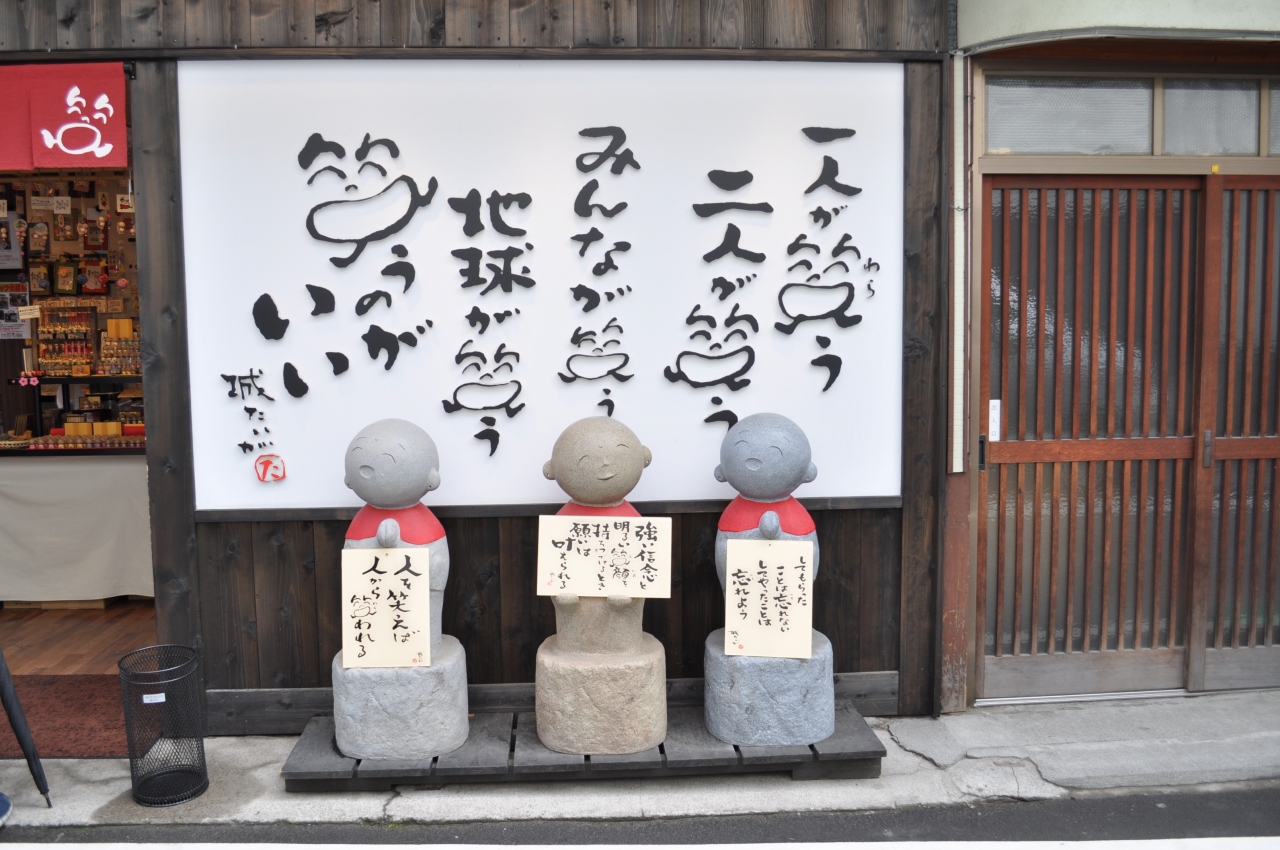 一人が笑う
わら
二人が笑う
みんなが笑う
地球が笑う
笑うのが
いい
城たいが
た
笑
してもらった
ことは忘れない
してやったことは
忘れよう
強い信念と
明るい笑顔を
持ちつづけるとき
願いは
叶えられる
人を笑えば
人から笑われる